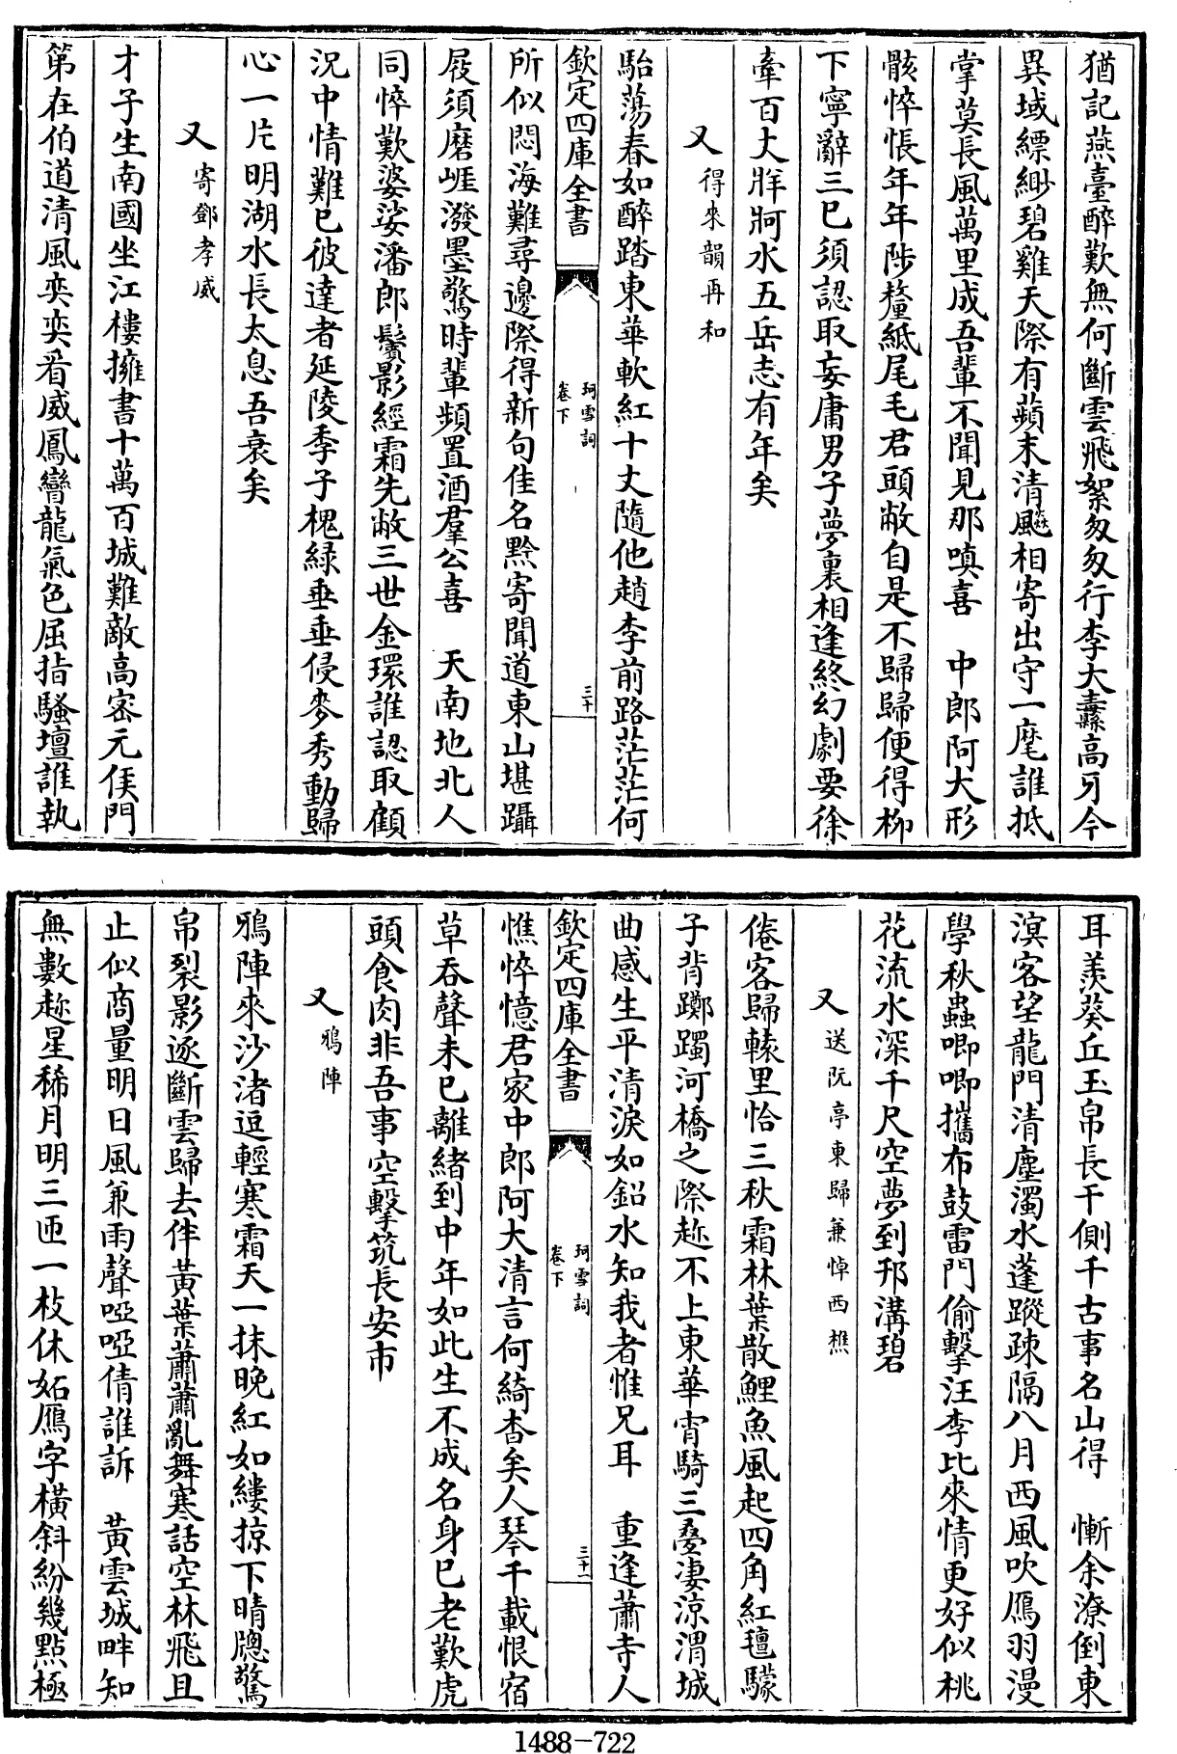 猶記燕臺醉歎無何斷雲飛絮匆匆行李大纛高牙今
異域縹緲碧雞天際有蘋末清飈相寄出守一麾誰抵
掌莫長風萬里成吾輩不聞見那嗔喜　中郎阿大形
骸悴悵年年陟釐紙尾毛君頭敝自是不歸歸便得柳
下寧辭三已須認取妄庸男子夢裏相逢終幻劇要徐
牽百丈牂牁水五岳志有年矣
又得來韻再和
駘蕩春如醉踏東華軟紅十丈隨他趙李前路茫茫何
欽定四庫全書
珂雪詞
卷下
三十
所似悶海難尋邊際得新句佳名黔寄聞道東山堪躡
屐須磨崕潑墨驚時輩頻置酒羣公喜　天南地北人
同悴歎婆娑潘郎鬢影經霜先敝三世金環誰認取顧
況中情難已彼達者延陵季子槐綠垂垂侵麥秀動歸
心一片明湖水長太息吾衰矣
又寄鄧孝威
才子生南國坐江樓擁書十萬百城難敵高密元侯門
第在伯道清風奕奕看威鳳鸞龍氣色屈指騷壇誰執
耳羨葵丘玉帛長干側千古事名山得　慚余潦倒東
溟客望龍門清塵濁水蓬蹤疎隔八月西風吹鴈羽漫
學秋蟲唧唧攜布鼓雷門偷擊汪李比來情更好似桃
花流水深千尺空夢到邗溝碧
又送阮亭東歸兼悼西樵
倦客歸轅里恰三秋霜林葉散鯉魚風起四角紅氊驟
子背躑躅河橋之際趂不上東華宵騎三疊凄涼渭城
曲感生平清淚如鉛水知我者惟兄耳　重逢蕭寺人
欽定四庫全書
珂雪詞
卷下
三十一
憔悴憶君家中郎阿大清言何綺杳矣人琴千載恨宿
草吞聲未已離緒到中年如此生不成名身已老歎虎
頭食肉非吾事空擊筑長安市
又鴉陣
鴉陣來沙渚逗輕寒霜天一抹晚紅如縷掠下晴牕驚
帛裂影逐斷雲歸去伴黃葉蕭蕭亂舞寒話空林飛且
止似商量明日風兼雨聲啞啞倩誰訴　黃雲城畔知
無數趂星稀月明三匝一枝休妬鴈字橫斜紛幾點極
1488-722